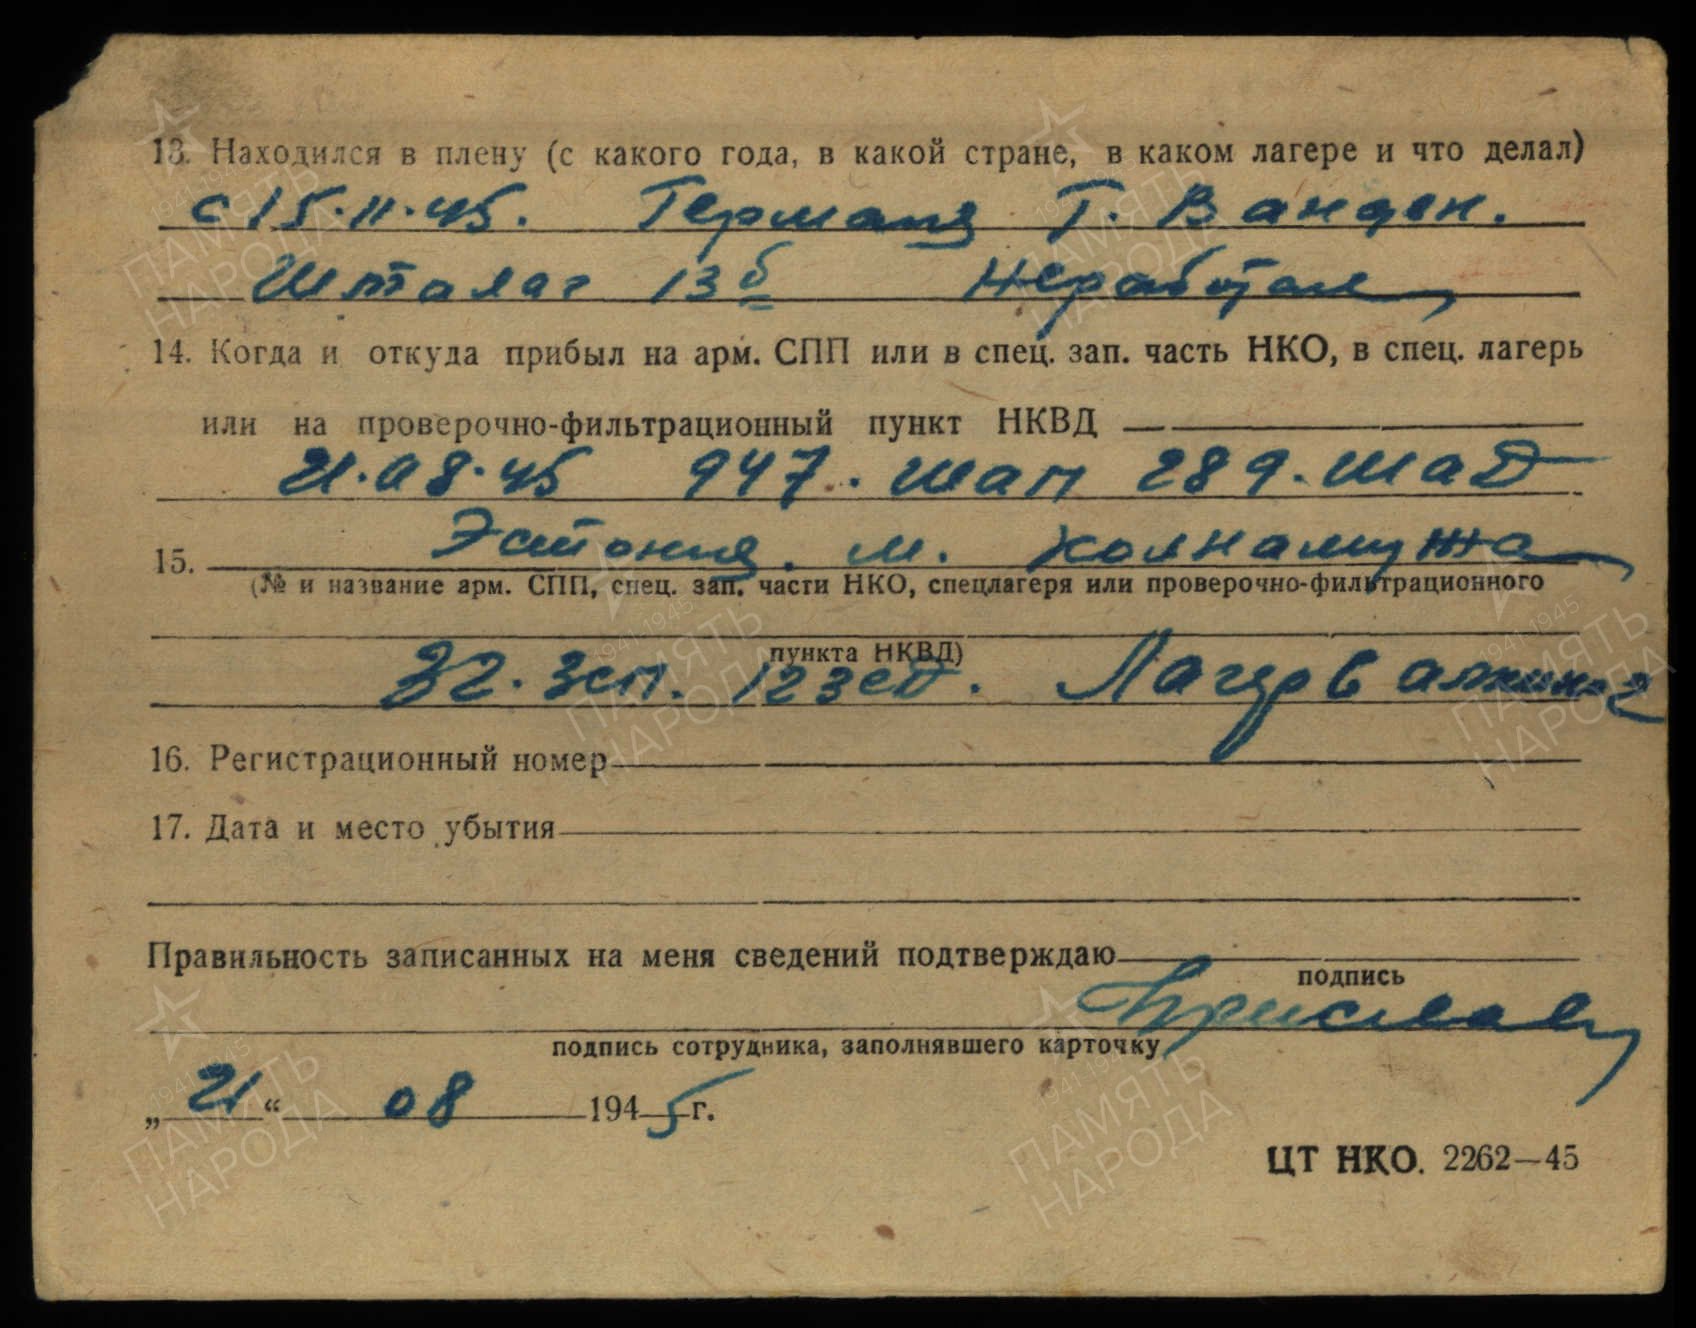 13. Находился в плену (с какого года, в какой стране, в каком лагере и что делал)
с 15.11.45. Германя Г. Ванден.
Шталаг 13 б Неработал
14. Когда и откуда прибыл на арм. СПП или в спец. зап. часть НКО, в спец. лагерь
или на проверочно-фильтрационный пункт НКВД
21.08.45 947. шап 289. шад
15. Эстония. м.
(№ и название арм. СПП, спец. зап. части НКО, спецлагеря или проверочно-фильтрационного
пункта НКВД)
32. Зсп. 12 Зсд. Лагерь
16. Регистрационный номер
17. Дата и место убытия
Правильность записанных на меня сведений подтверждаю
подпись
подпись сотрудника, заполнявшего карточку
„ 21 “ 08 1945 г.
ЦТ НКО. 2262—45
1941-1945
ПАМЯТЬ
НАРОДА